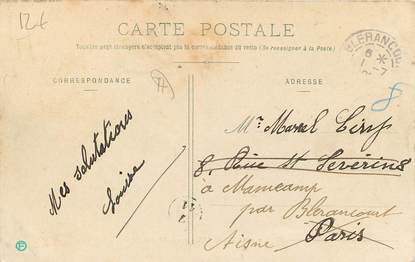 12€
CARTE POSTALE
Tous les pays étrangers n'acceptent pas la correspondance au recto (Se renseigner à la Poste)
CORRESPONDANCE
ADRESSE
BLÉRANCOURT
Mes salutations
Louise
Mr. Marcel
8, Rue St Séverins
à Manicamp
par Blérancourt
Aisne Paris
8